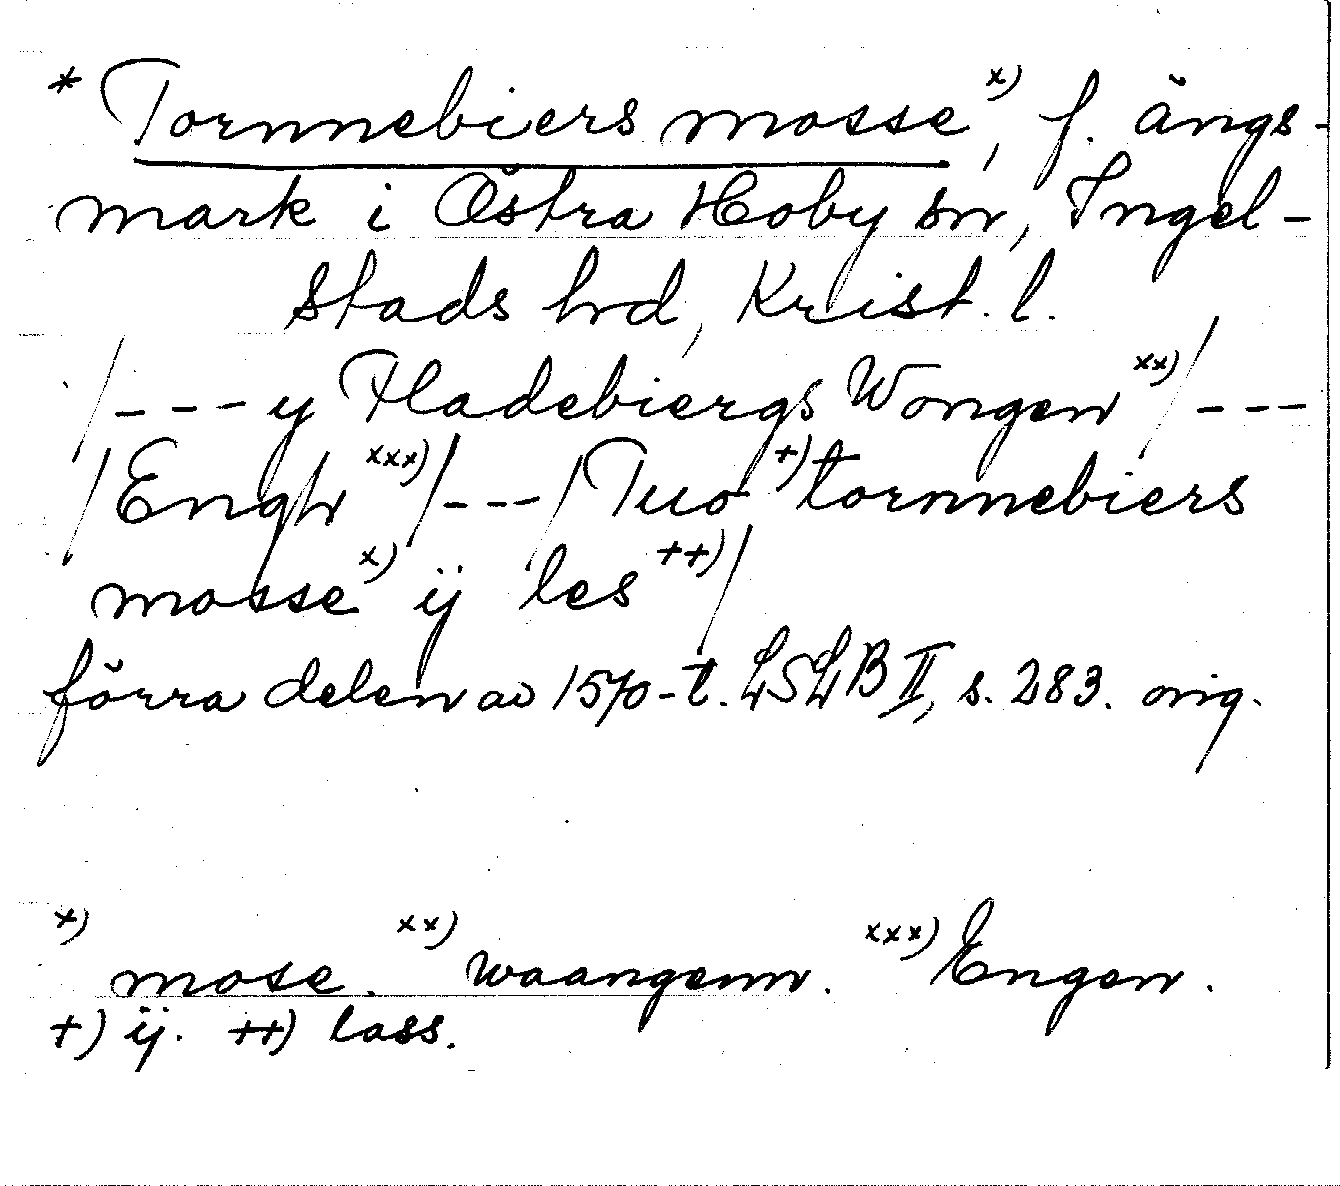 * Tornnebiers mosse x), f. ängs-
mark i Östra Hoby sn, Ingel-
stads hrd, Krist. l.
/--- y Fladebiergs Wongen xx)/---
/Engh xxx)/---/Tuo +) tornnebiers
mosse x) ij les ++)/
förra delen av 1570-t. LSLB II, s. 283. orig.
x) mose. xx) waangenn. xxx) Engen.
+) ij. ++) lass.